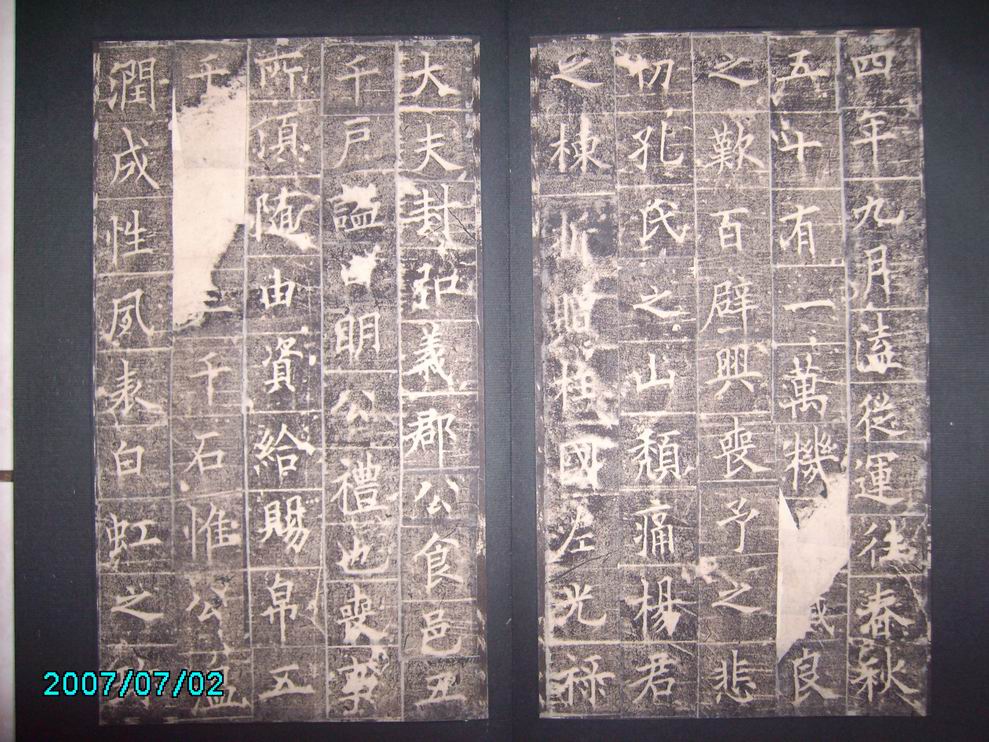 四年九月溘從運往春秋
五十有一萬機良
之歎百辟興喪予之悲
切孔氏之山頹痛楊君
之棟折贈柱國左光祿
大夫封弘義郡公食邑五
千戶謚曰明公禮也喪事
所須隨由資給賜帛五
千二千石惟公溫
潤成性夙表白虹之珍
2007/07/02